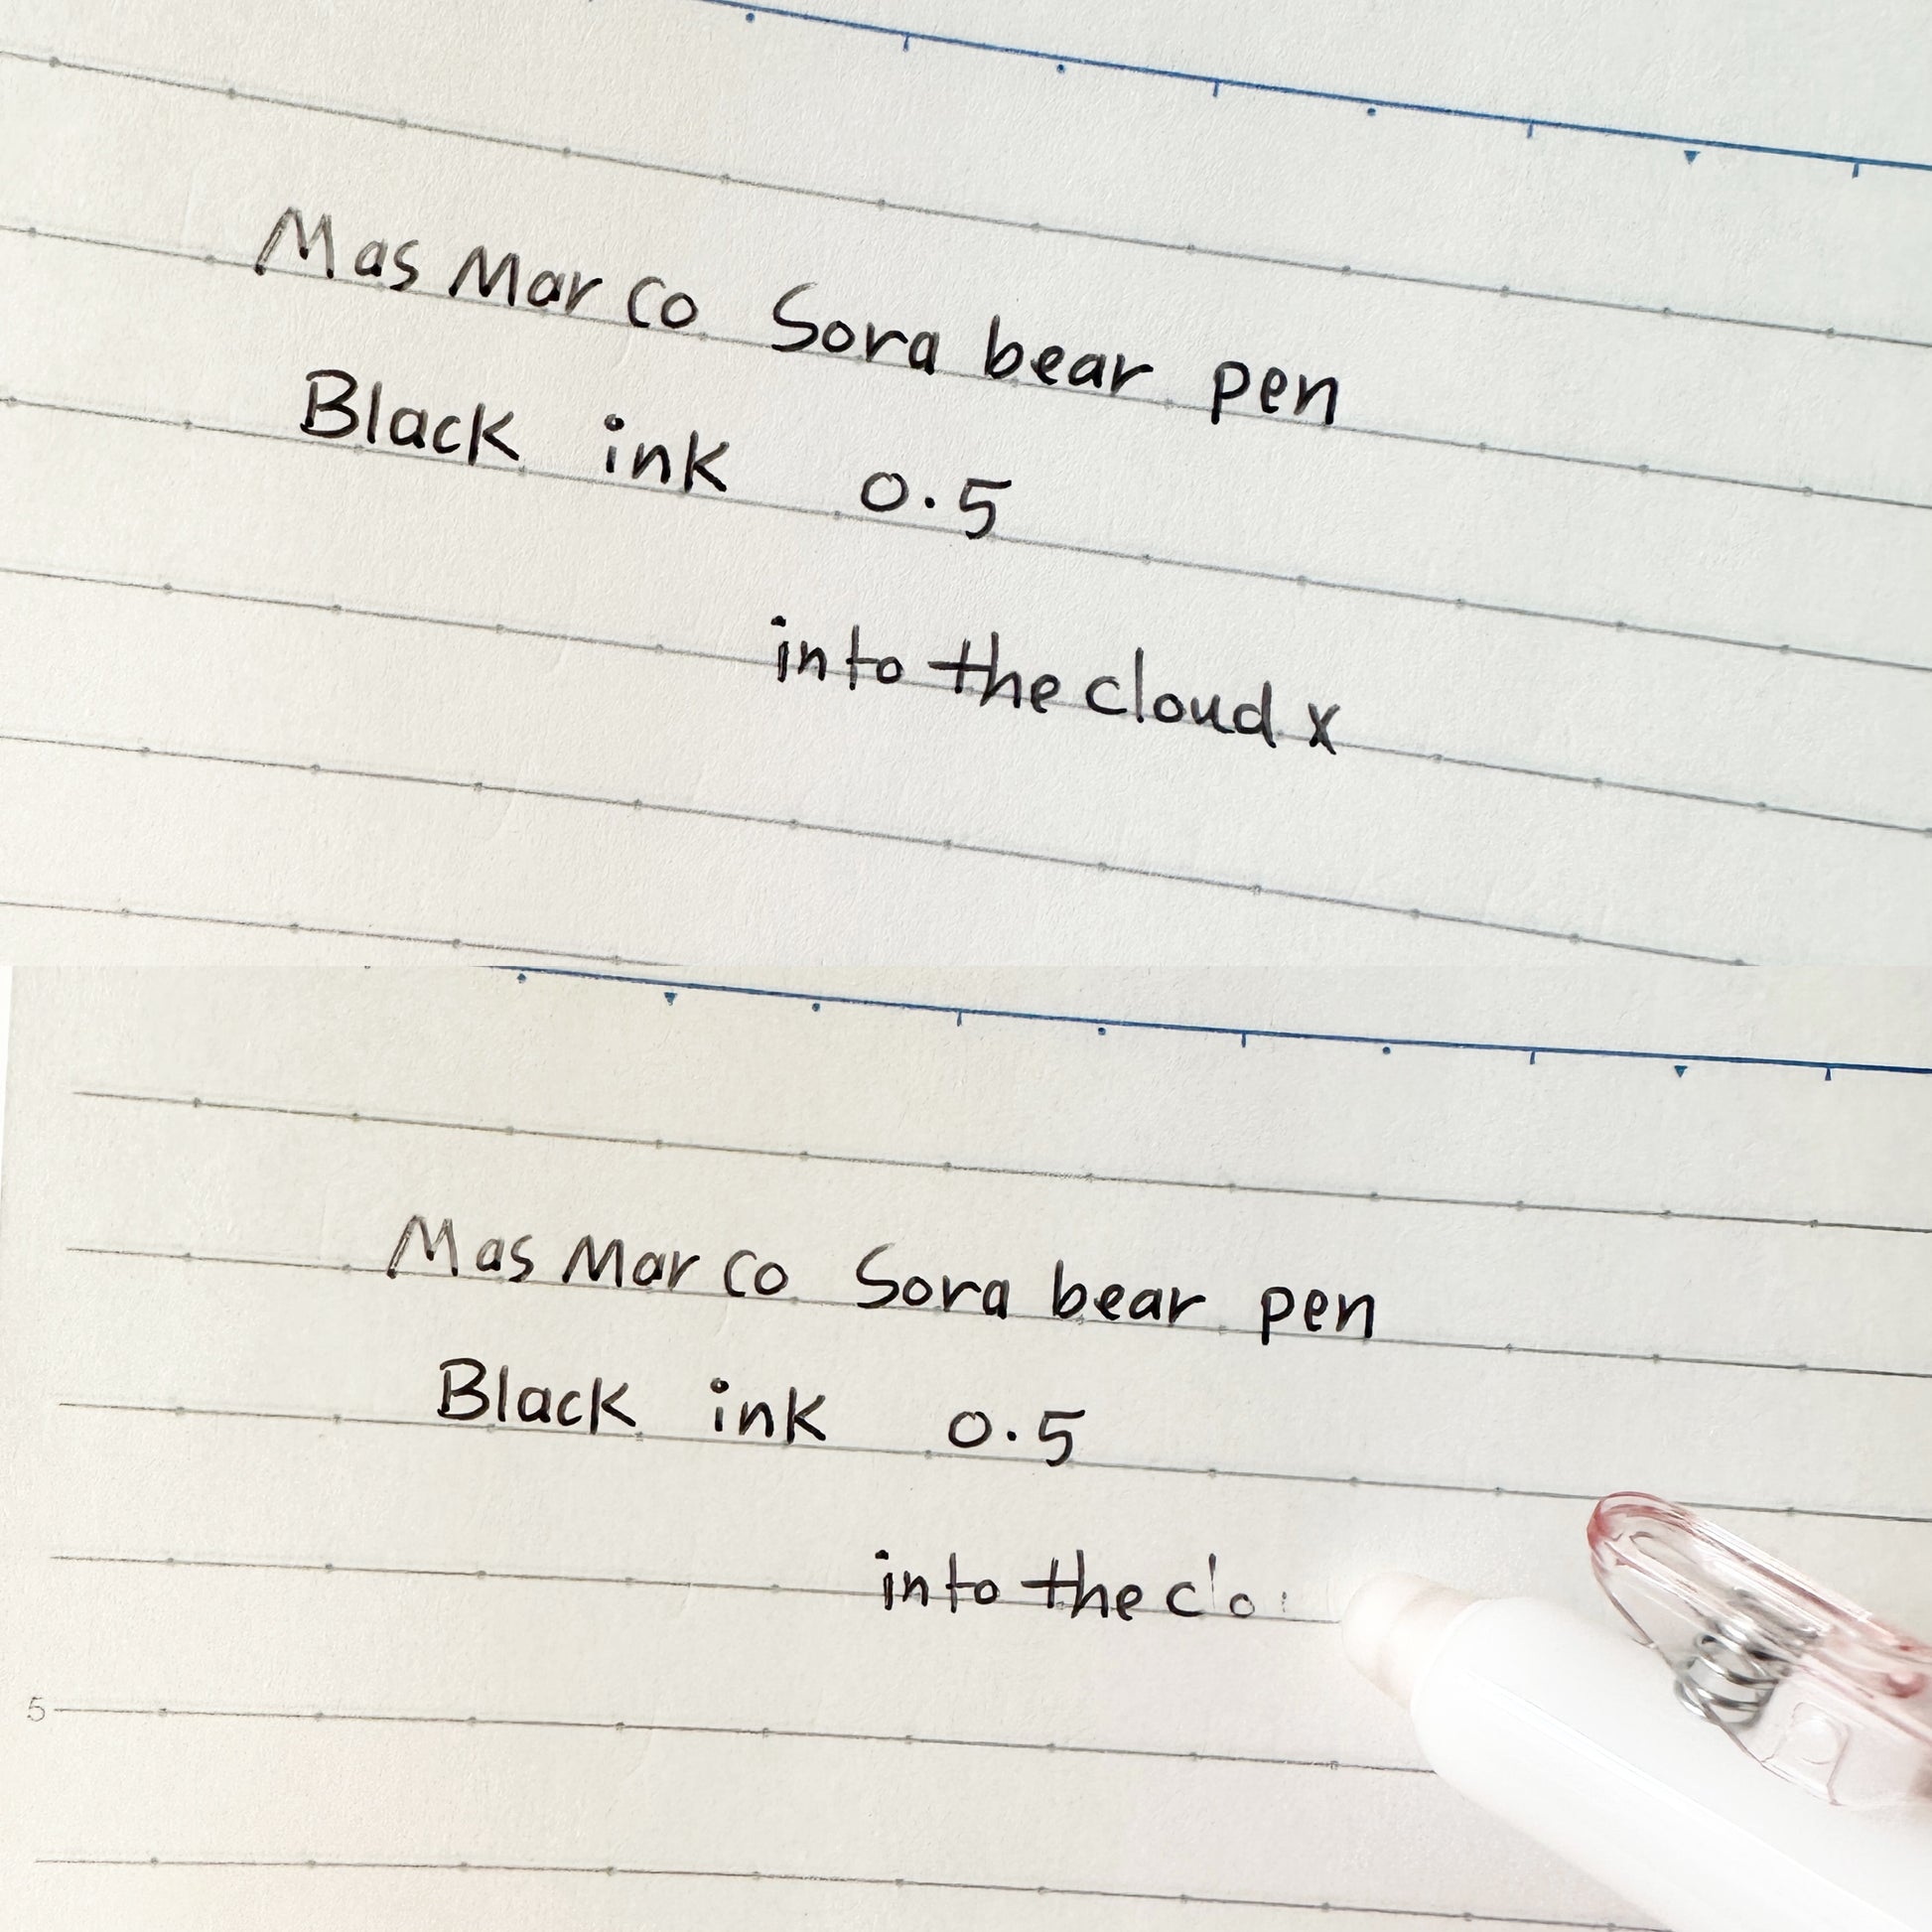 Mas Marco Sora bear pen
Black ink 0.5
into the cloud x
Mas Marco Sora bear pen
Black ink 0.5
into the clo
5